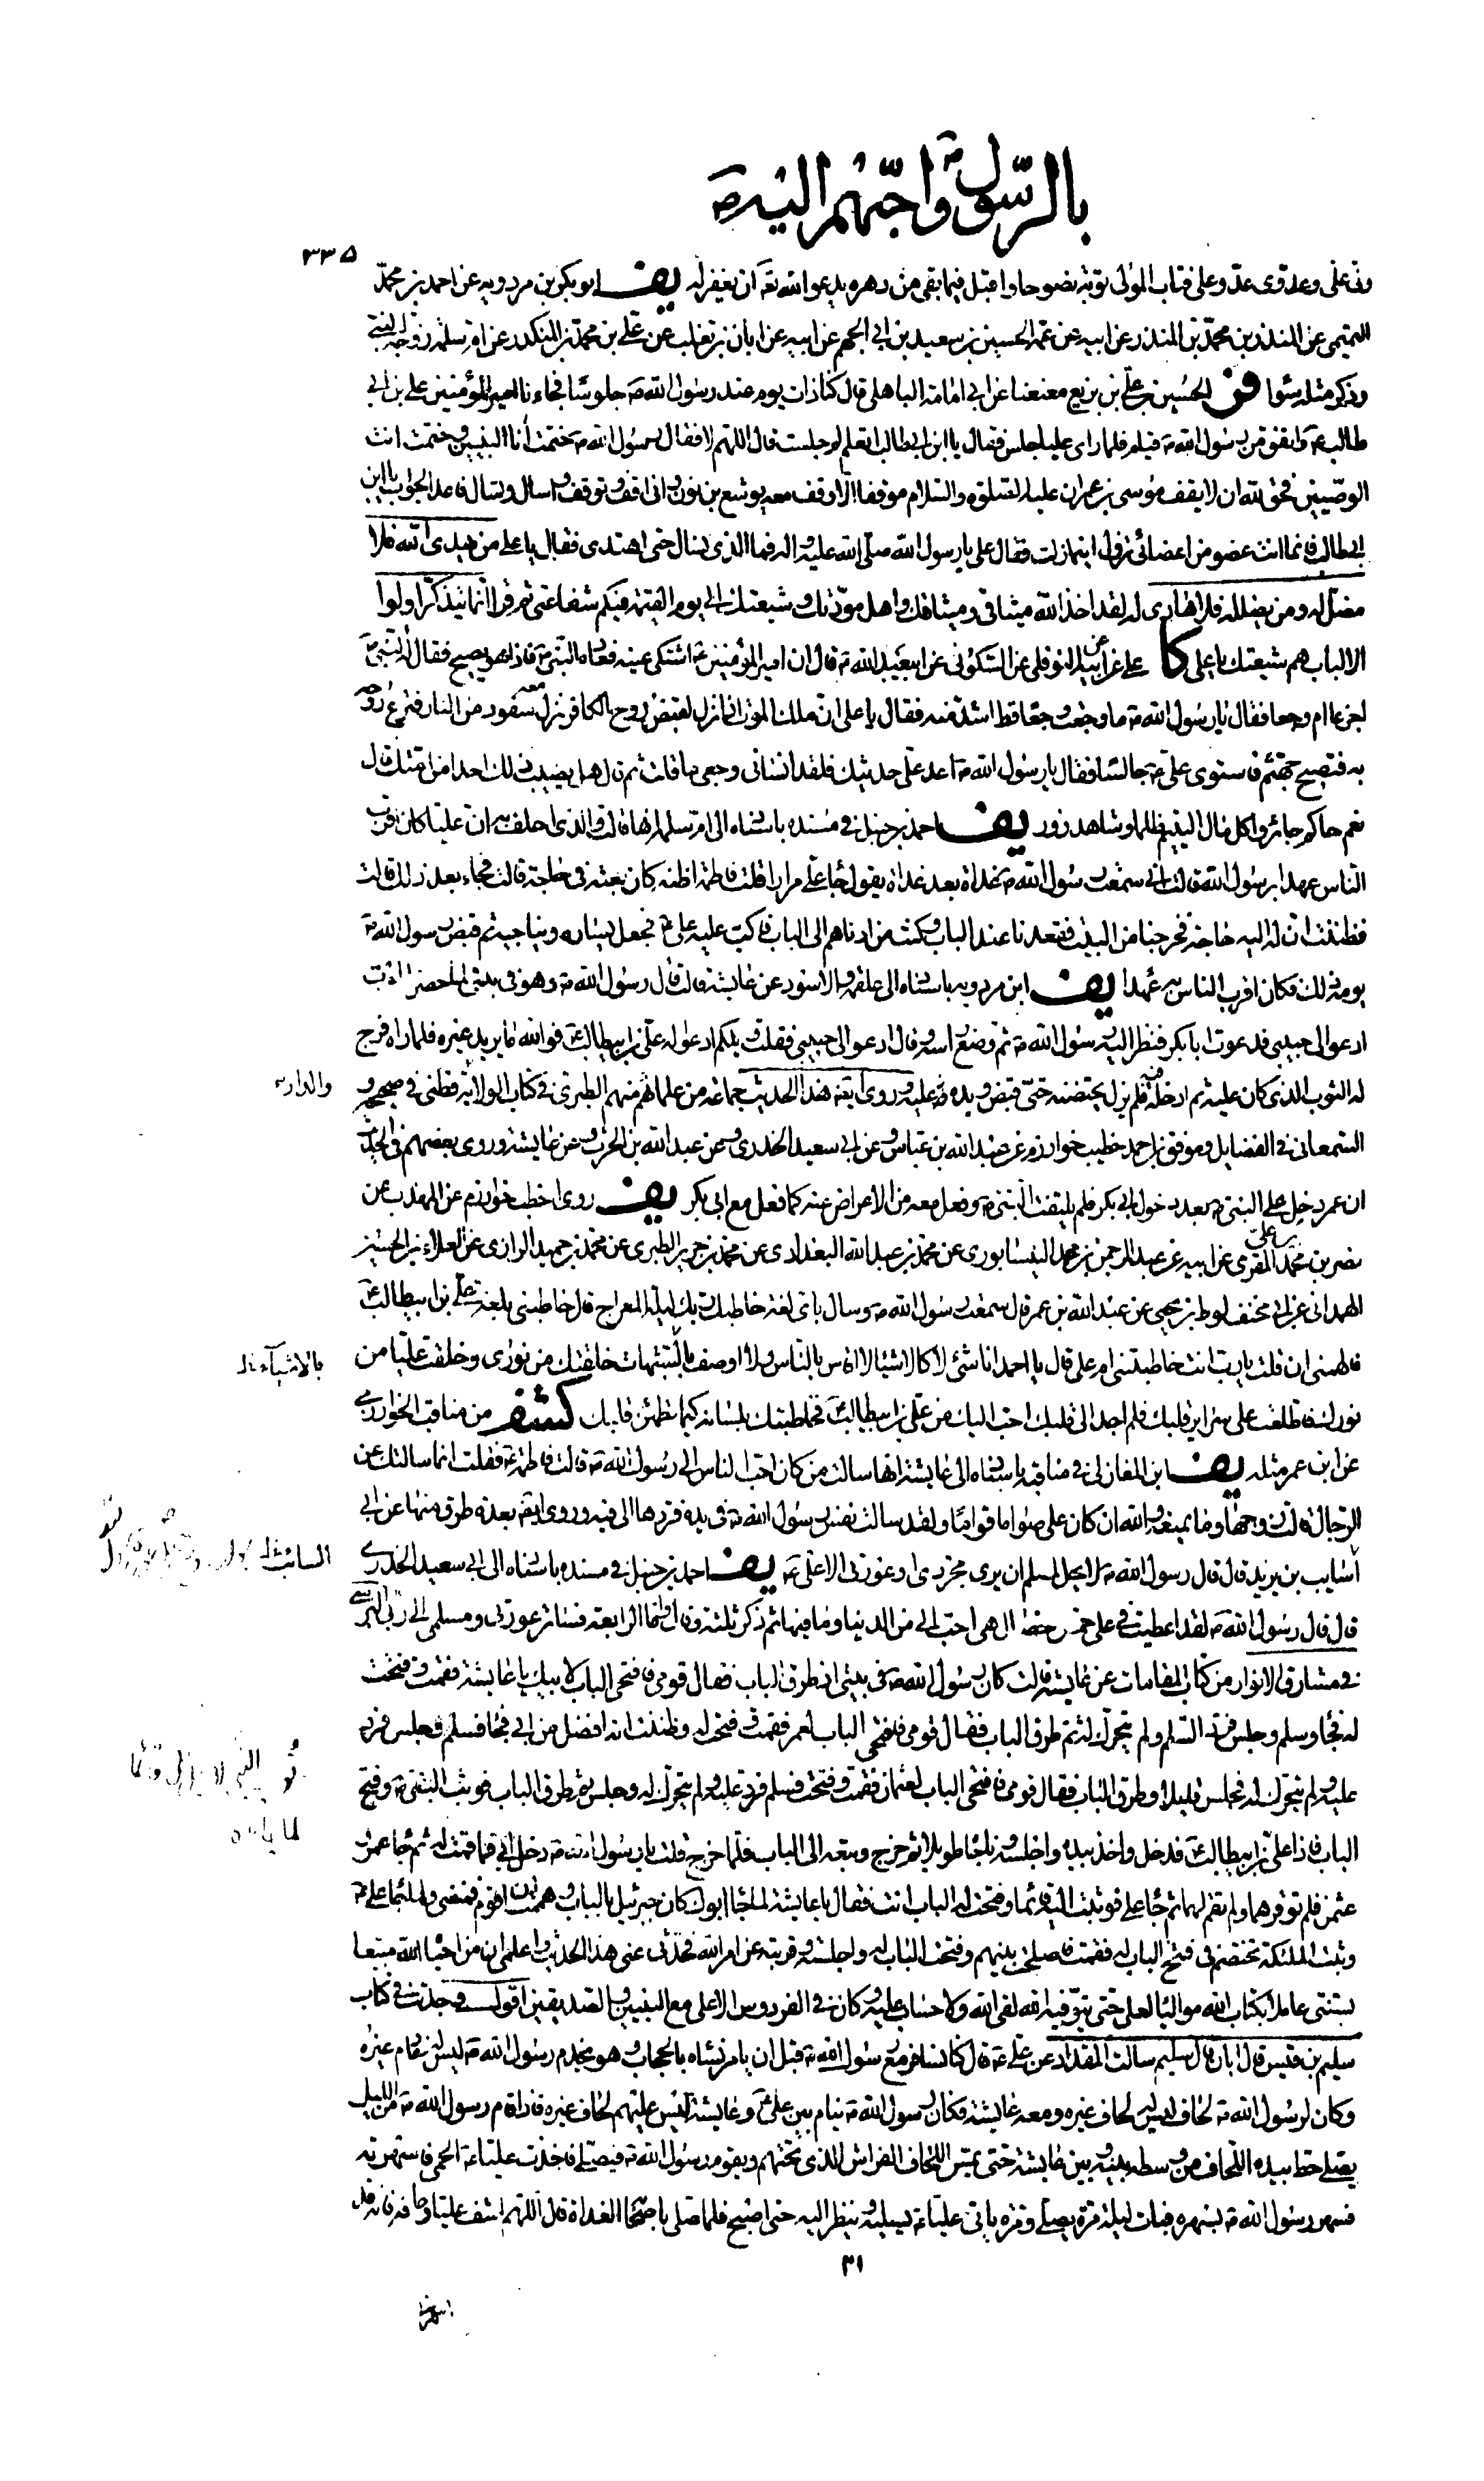 بالرسول ص واحبهم اليه ص
٣٣٥
ولي علي وعدوي عدو علي فتاب المولى توبة نصوحا واقبل فيما بقي من دهره يدعو الله تعه ان يغفر له يف ابو بكر بن مردويه عن احمد بن محمد
التميمي عن المنذر بن محمد بن المنذر عن ابيه عن عمه الحسين بن سعيد بن ابي الجهم عن ابيه عن ابان بن تغلب عن علي بن محمد بن المنكدر عن ام سلمة زوجة النبي
وذكر مثله سواء فر الحسين بن علي بن بزيع معنعنا عن ابي امامة الباهلي قال كنا ذات يوم عند رسول الله ص جلوسا فجاءنا امير المؤمنين علي بن ابي
طالب ع واتفق من رسول الله ص قيام فلما راى عليا جلس فقال يا ابن ابي طالب اتعلم لم جلست قال اللهم لا فقال رسول الله ص ختمت انا النبيين وختمت انت
الوصيين فحق لله ان لا يقف موسى بن عمران عليه الصلوة والسلام موقفا الا وقف معه يوشع بن نون واني اقف وتوقف واسال وتسال فاعد الجواب يا ابن
ابي طالب فانما انت عضو من اعضائي تزول اينما زلت فقال علي يا رسول الله صلى الله عليه واله فما الذي تسال حتى اهتدي فقال يا علي من يهدي الله فلا
مضل له ومن يضلله فلا هادي له لقد اخذ الله ميثاقي وميثاقك واهل مودتك وشيعتك الى يوم القيمة فيكم شفاعتي ثم قرا انما يتذكر اولوا
الالباب هم شيعتك يا علي كا علي عن ابيه عن النوفلي عن السكوني عن ابيعبد الله ع قال ان امير المؤمنين ع اشتكى عينه فعاده النبي ص فاذا هو يصيح فقال له النبي ص
اجزعا ام وجعا فقال يا رسول الله ص ما وجعت وجعا قط اشد منه فقال يا علي ان ملك الموت اذا نزل لقبض روح الكافر نزل معه سفود من النار فنزع روحه
به فتصيح جهنم فاستوى علي ع جالسا فقال يا رسول الله ص اعد علي حديثك فلقد انساني وجعي ما قلت ثم قال هل يصيب ذلك احدا من امتك قال
نعم حاكم جائر واكل مال اليتيم ظلما وشاهد زور يف احمد بن حنبل في مسنده باسناده الى ام سلمة انها قالت والذي احلف به ان عليا كان اقرب
الناس عهدا برسول الله قالت اني سمعت رسول الله ص غداة بعد غداة يقول جاء علي مرارا قالت فاطمة اظنه كان بعثه في حاجة قالت فجاء بعد ذلك قالت
فظننت ان له اليه حاجة فخرجنا من البيت فقعدنا عند الباب وكنت من ادناهم الى الباب فاكب عليه علي ع فجعل يساره ويناجيه ثم قبض رسول الله ص
يومه ذلك فكان اقرب الناس به عهدا يف ابن مردويه باسناده الى علقمة والاسود عن عايشة قالت قال رسول الله ص وهو في بيتي لما حضره الموت
ادعوا لي حبيبي فدعوت ابا بكر فنظر اليه رسول الله ص ثم وضع راسه وقال ادعوا لي حبيبي فقلت ويلكم ادعوا له علي بن ابيطالب ع فوالله ما يريد غيره فلما راه فرج
له الثوب الذي كان عليه ثم ادخله فيه فلم يزل يحتضنه حتى قبض ويده عليه وروى ايضه هذا الحديث جماعة من علمائهم منهم الطبري في كتاب الولاية والدارقطني في صحيحه و
السمعاني في الفضايل وموفق بن احمد خطيب خوارزم عن عبد الله بن عباس وعن ابي سعيد الخدري وعن عبد الله بن الحرث وعن عايشة وروى بعضهم في الحديث
ان عمر دخل على النبي ص بعد دخول ابي بكر فلم يلتفت النبي ص وفعل معه من الاعراض عنه كما فعل مع ابي بكر يف روى اخطب خوارزم عن المهذب عن
نصر بن محمد بن علي المقري عن ابيه عن عبد الرحمن بن محمد النيشابوري عن محمد بن عبد الله البغدادي عن محمد بن جرير الطبري عن محمد بن حميد الرازي عن العلاء بن الحسين
الهمداني عن ابي مخنف لوط بن يحيى عن عبد الله بن عمر قال سمعت رسول الله ص وسال باي لغة خاطبك ربك ليلة المعراج قال خاطبني بلغة علي بن ابيطالب ع
فالهمني ان قلت يا رب انت خاطبتني ام علي قال يا احمد انا شئ لا كالاشياء لا اقاس بالناس ولا اوصف بالشبهات خلقتك من نوري وخلقت عليا من
نورك فاطلعت على سراير قلبك فلم اجد الى قلبك احب اليك من علي بن ابيطالب ع فخاطبتك بلسانه كيما تطمئن قلبك كشف من مناقب الخوارزمي
عن ابن عمر مثله يف ابن المغازلي في مناقبه باسناده الى عايشة انها سالت من كان احب الناس الى رسول الله ص قالت فاطمة ع فقلت انما سالتك عن
الرجال قالت زوجها وما يمنعه والله ان كان علي صواما قواما ولقد سالت نفس رسول الله ص في يده فردها الى فيه وروى ايضه بعدة طرق منها عن ابي
السايب بن يزيد قال قال رسول الله ص لا يحل لمسلم ان يرى مجردي او عورتي الا علي ع يف احمد بن حنبل في مسنده باسناده الى ابي سعيد الخدري
قال قال رسول الله ص لقد اعطيت في علي خمس خصال هي احب الي من الدنيا وما فيها ثم ذكر ثلثة وقال واما الرابعة فساتر عورتي ومسلمي الى ربي البرسي
في مشارق الانوار من كتاب المقامات عن عايشة قالت كان رسول الله ص في بيتي اذ طرق الباب فقال قومي فافتحي الباب لابيك يا عايشة فقمت وفتحت
له فجاء وسلم وجلس فرد السلم ولم يتحرك له ثم طرق الباب فقال قومي فافتحي الباب لعمر فقمت وفتحت له وظننت انه افضل من ابي فجاء فسلم وجلس فرد
عليه ولم يتحرك له فجلس قليلا وطرق الباب فقال قومي فافتحي الباب لعثمان فقمت وفتحت فسلم فرد عليه ولم يتحرك له وجلس ثم طرق الباب فوثب النبي ص وفتح
الباب فاذا علي بن ابيطالب ع فدخل واخذ بيده واجلسه وناجاه طويلا ثم خرج وتبعه الى الباب فلما خرج قلت يا رسول الله ص دخل ابي فما قمت له ثم جاء عمر و
عثمن فلم توقرهما ولم تقم لهما ثم جاء علي فوثبت اليه قائما وفتحت له الباب انت فقال يا عايشة لما جاء ابوك كان جبرئيل بالباب وهممت ان اقوم فمنعني ولما جاء علي ع
وثبت الملئكة تختصم في فتح الباب له فقمت فاصلحت بينهم وفتحت الباب له واجلسته وقربته عن امر الله فحدثي عني هذا الحديث واعلمي ان من احياه الله متبعا
لسنتي عاملا بكتاب الله مواليا لعلي حتى يتوفيه الله لقى الله ولا حساب عليه وكان في الفردوس الاعلى مع النبيين والصديقين اقول وجدت في كتاب
سليم بن قيس قال ابان قال سليم سالت المقداد عن علي ع قال كنا نسافر مع رسول الله ص قبل ان يامر نساه بالحجاب وهو يخدم رسول الله ص ليس له خادم غيره
وكان لرسول الله ص لحاف ليس له لحاف غيره ومعه عايشة فكان رسول الله ص ينام بين علي ع وعايشة ليس عليهم لحاف غيره فاذا قام رسول الله ص من الليل
يصلي حط بيده اللحاف من وسطه بينه وبين عايشة حتى يمس اللحاف الفراش الذي تحتهم ويقوم رسول الله ص فيصلي فاخذت عليا ع الحمى فاسهرته
فسهر رسول الله ص لسهره فبات ليله مرة يصلي ومرة ياتي عليا ع يسليه وينظر اليه حتى اصبح فلما صلى باصحابه الغداة قال اللهم اشف عليا وعافه فانه قد
والدار
بالاشياء خ‍ل
السائب
٣١
اسهرني